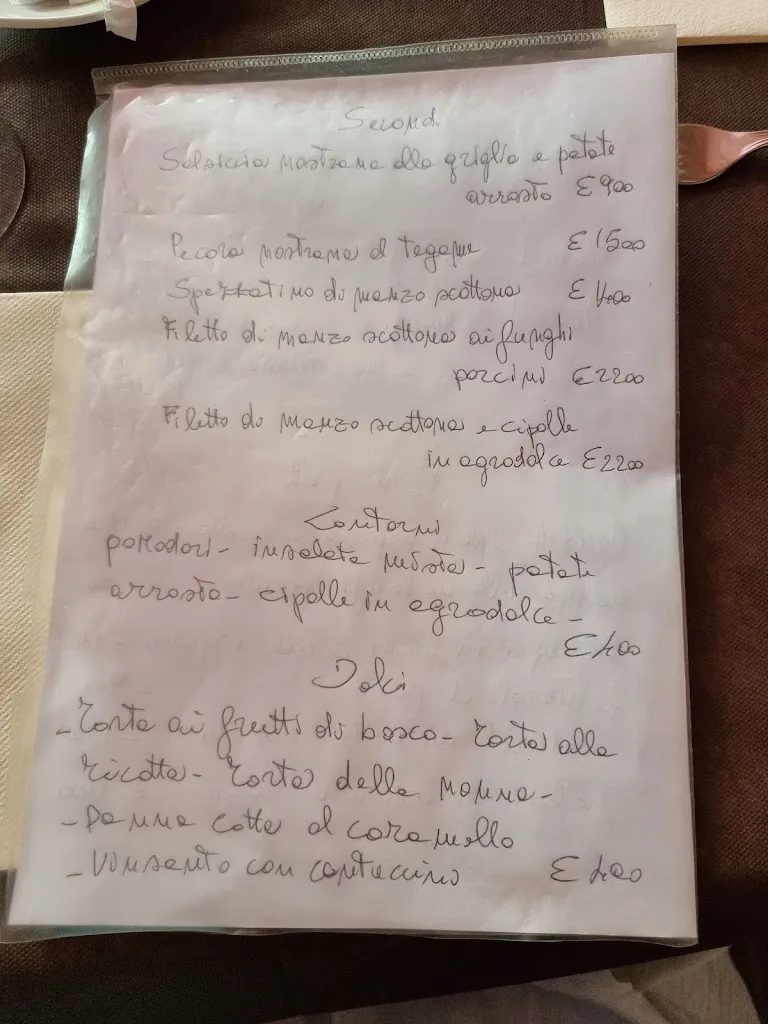 Secondi
Salsiccia nostrana alla griglia e patate
arrosto € 900
Pecora nostrana al tegame € 1500
Spezzatino di manzo scottona € 1400
Filetto di manzo scottona ai funghi
porcini € 2200
Filetto di manzo scottona e cipolle
in agrodolce € 2200
Contorni
pomodori - insalata mista - patate
arrosto - cipolle in agrodolce -
€ 400
Dolci
- Torta ai frutti di bosco - Torta alla
ricotta - Torta della nonna -
- Panna cotta al caramello
- Vinsanto con cantuccini € 400